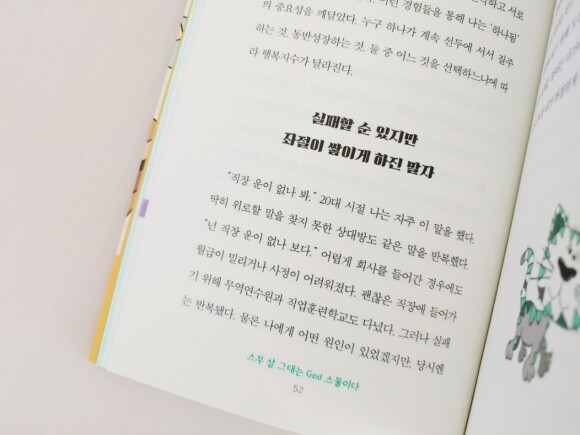 이런 경험들을 통해 나는 '하나됨'
의 중요성을 깨달았다. 누구 하나가 계속 선두에 서서 질주
하는 것, 동반성장하는 것, 둘 중 어느 것을 선택하느냐에 따
라 행복지수가 달라진다.
실패할 순 있지만
좌절이 쌓이게 하진 말자
"직장 운이 없나 봐." 20대 시절 나는 자주 이 말을 했다.
딱히 위로할 말을 찾지 못한 상대방도 같은 말을 반복했다.
"넌 직장 운이 없나 보다." 어렵게 회사를 들어간 경우에도
월급이 밀리거나 사정이 어려워졌다. 괜찮은 직장에 들어가
기 위해 무역연수원과 직업훈련학교도 다녔다. 그러나 실패
는 반복됐다. 물론 나에게 어떤 원인이 있었겠지만, 당시엔
스무 살 그대는 God 스물이다
52